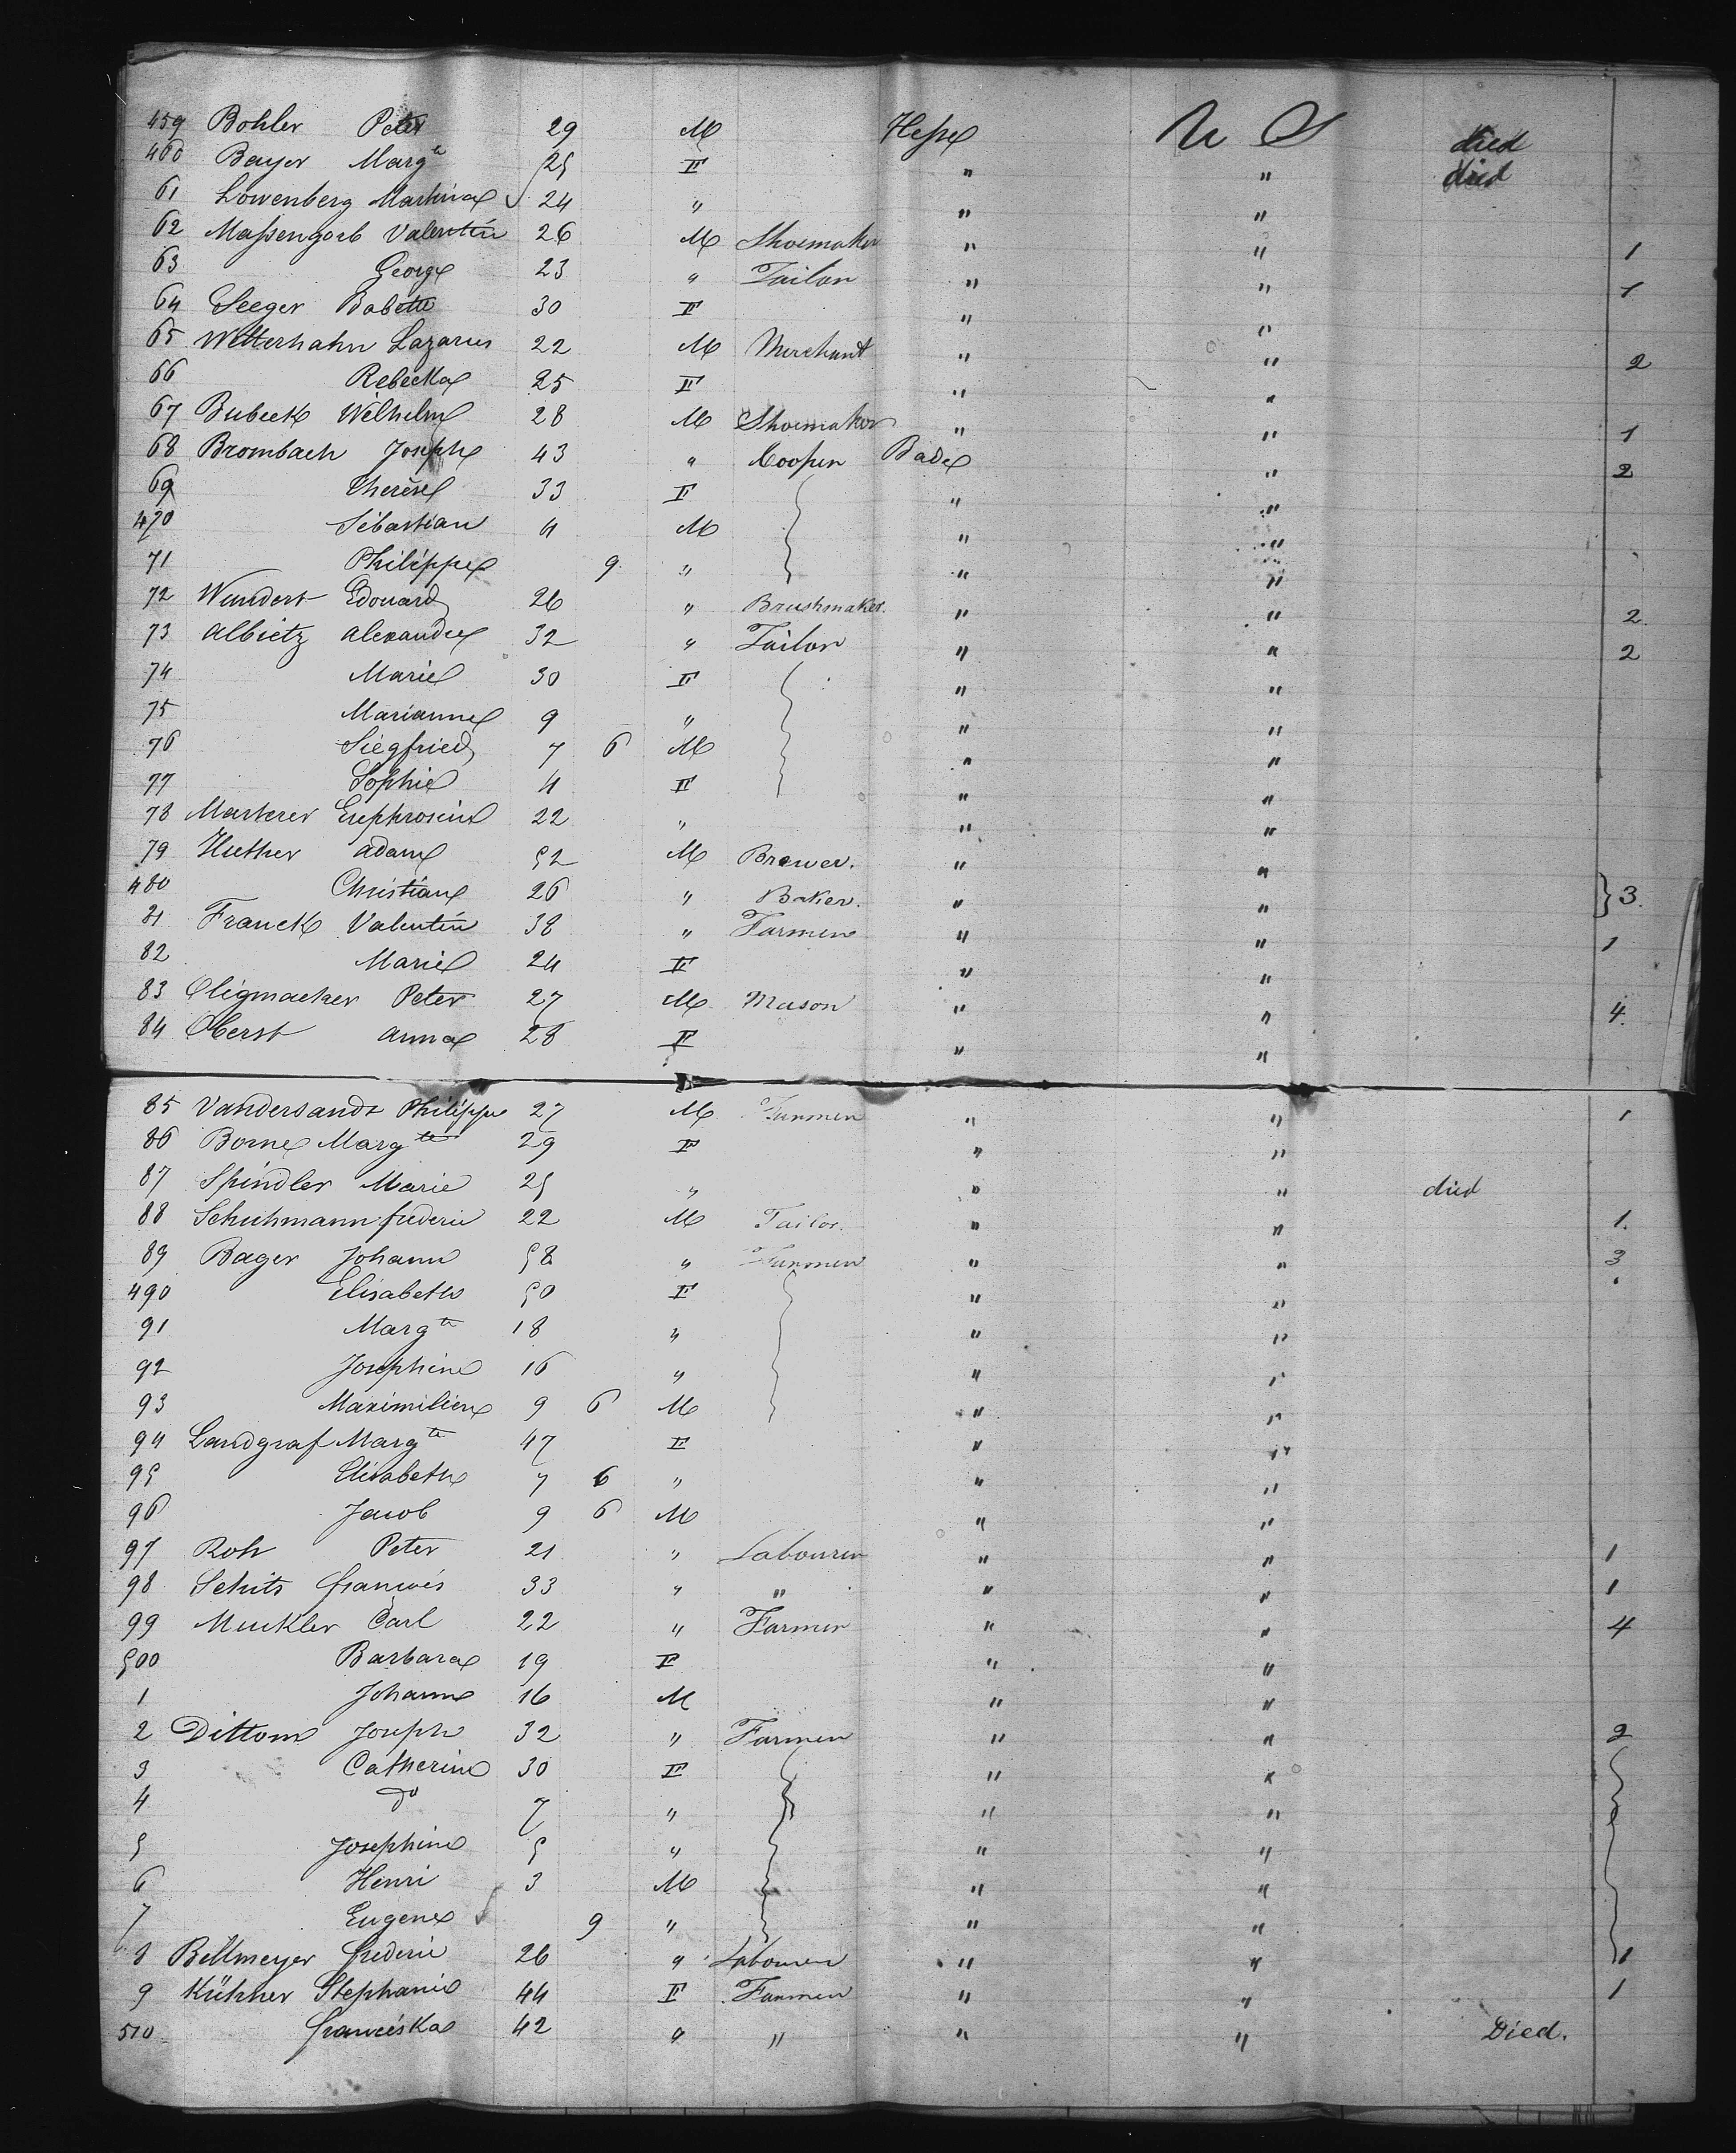 459 Bohler Peter 29 M Hesse U S died
460 Bayer Marg te 25 F " " died
61 Lowenberg Martina 24 " " "
62 Massengarb Valentin 26 M Shoemaker " " 1
63 George 23 " Tailor " " 1
64 Seeger Babette 30 F " "
65 Wetterhahn Lazarus 22 M Merchant " " 2
66 Rebecka 25 F " "
67 Bubeck Wilhelm 28 M Shoemaker " " 1
68 Brombach Joseph 43 " Cooper Bade " 2
69 Therese 33 F " "
470 Sebastian 4 M " "
71 Philippe 9 " " "
72 Wundert Edouard 26 " Brushmaker. " " 2
73 Albietz Alexandre 32 " Tailor " " 2
74 Marie 30 F " "
75 Marianne 9 " " "
76 Siegfried 7 6 M " "
77 Sophie 4 F " "
78 Marterer Euphrosine 22 " " "
79 Huther Adam 52 M Brewer. " "
480 Christian 26 " Baker. " " } 3.
81 Franck Valentin 38 " Farmer " " 1
82 Marie 24 F " "
83 Oligmacher Peter 27 M Mason " " 4.
84 Oberst Anna 28 F " "
85 Vandersandt Philippe 27 M Farmer " " 1
86 Borne Marg te 29 F " "
87 Spindler Marie 25 " " " died
88 Schuhmann frederic 22 M Tailor. " " 1.
89 Bager Johann 58 " Farmer " " 3
490 Elisabeth 50 F " "
91 Marg te 18 " " "
92 Josephine 16 " " "
93 Maximilien 9 6 M " "
94 Landgraf Marg te 47 F " "
95 Elisabeth 7 6 " " "
96 Jacob 9 6 M " "
97 Roh Peter 21 " Labourer " " 1
98 Schits francois 33 " " " " 1
99 Muckler Carl 22 " Farmer " " 4
500 Barbara 19 F " "
1 Johann 16 M " "
2 Dittom Joseph 32 " Farmer " " 2
3 Catherine 30 F " "
4 do 7 " " "
5 Josephine 5 " " "
6 Henri 3 M " "
7 Eugene 9 " " "
8 Bellmeyer frederic 26 " Labourer " " 1
9 Kühner Stephanie 44 F Farmer " " 1
510 franciska 42 " " " " Died.